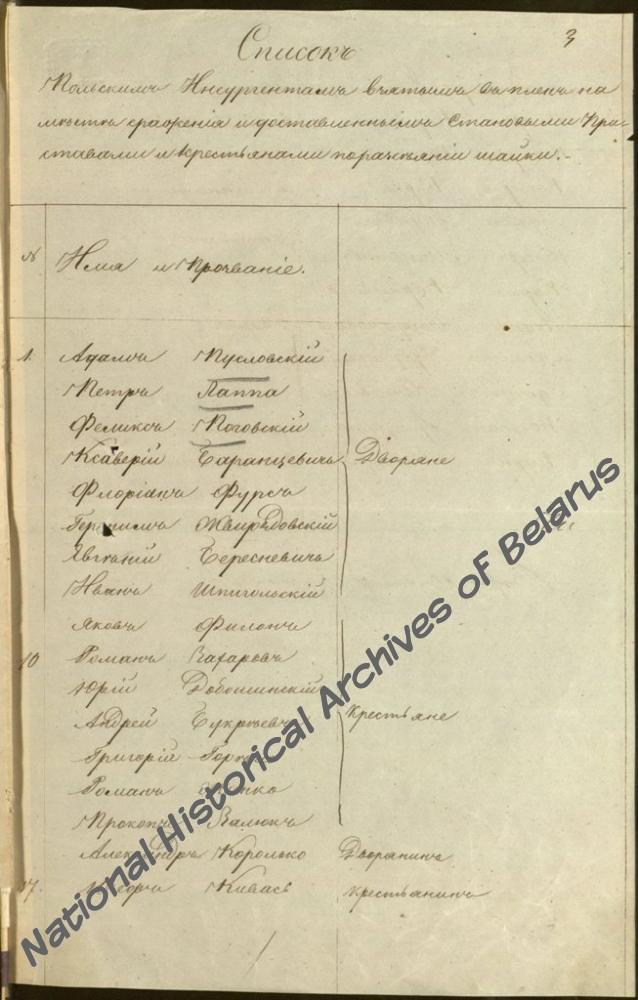 3
Списокъ
Польскимъ Инсургентамъ взятымъ въ пленъ на
мѣстѣ сраженія и доставленнымъ Становыми При-
ставами и крестьянами по разбитіи шайки.
№ Имя и Прозваніе.
1. Адамъ Пусловскій
Петръ Лаппа
Феликсъ Роговскій
Ксаверій Баранцевичъ Дворяне
Флоріанъ Фурсъ
Геронимъ
Евгеній Бересневичъ
Иванъ Шпигольскій
Яковъ Филонъ
10 Романъ Захаровъ
Юрій Добошинскій
Андрей Крестьяне
Григорій
Романъ
Прокопъ Валюкъ
Александръ Королько Дворянинъ
17. Кивась крестьянинъ
National Historical Archives of Belarus